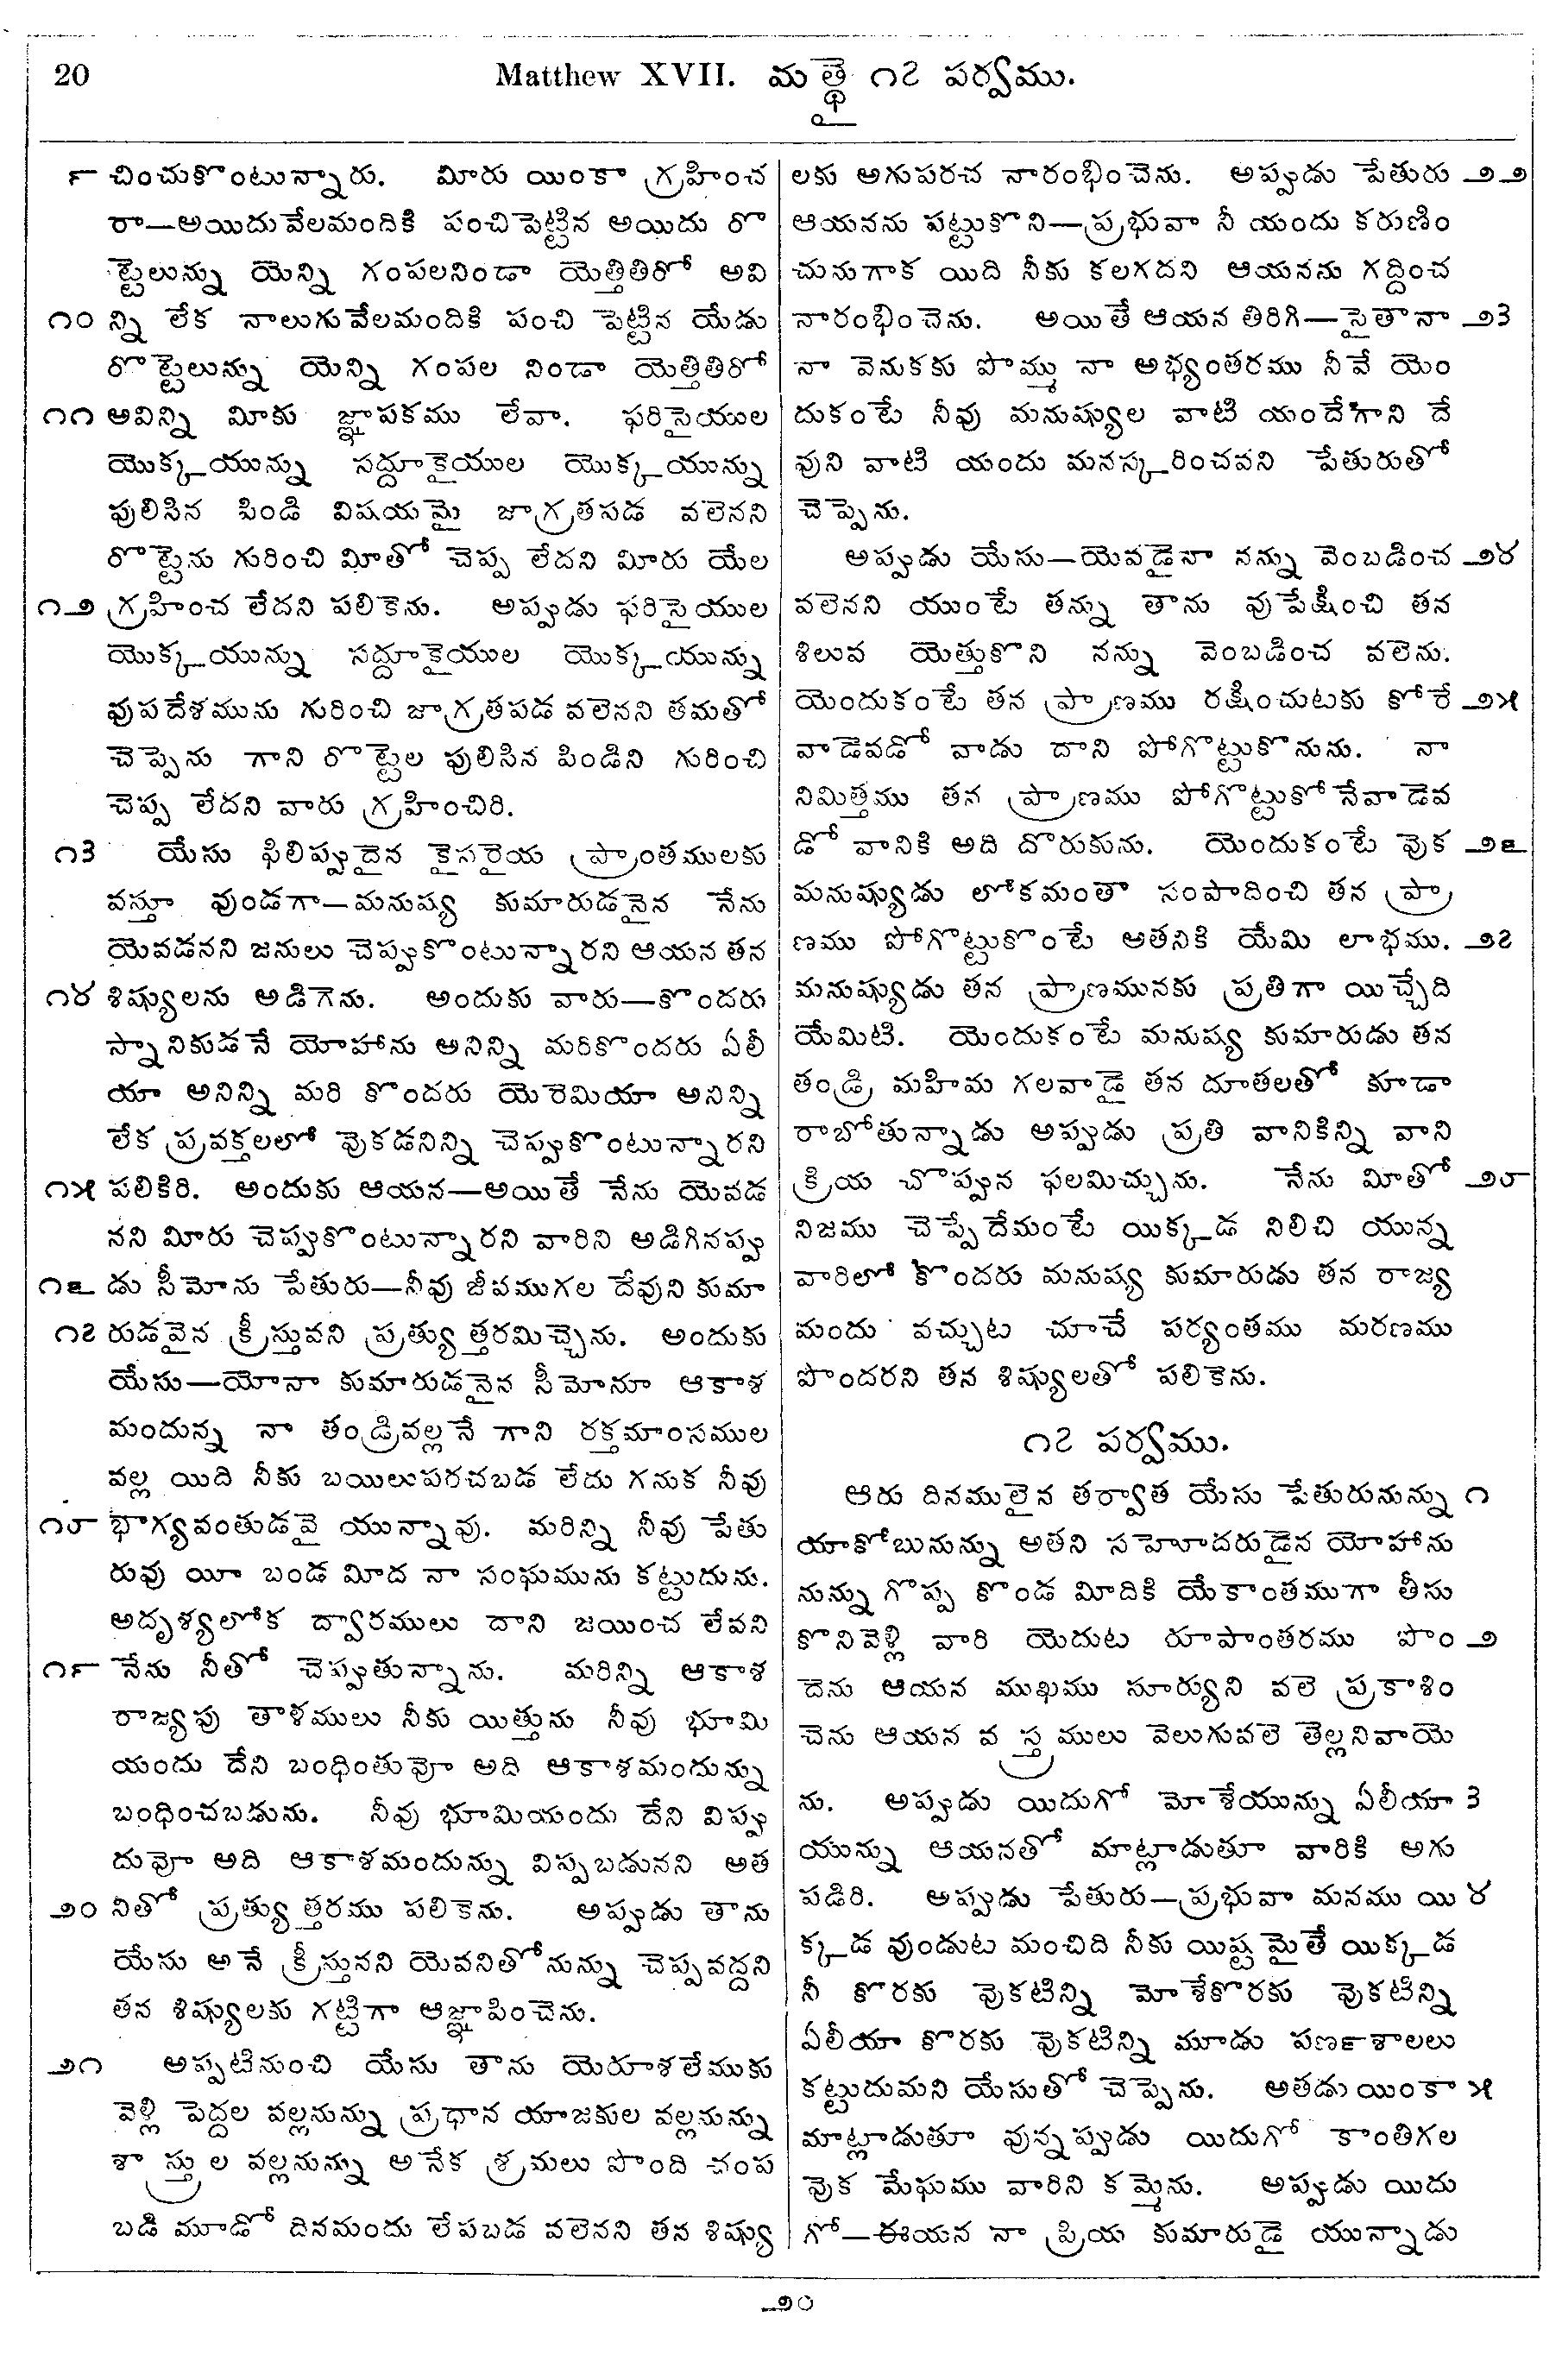 20
Matthew XVII. మత్థై ౧౭ పర్వము.
౯ చించుకొంటున్నారు. మీరు యింకా గ్రహించ
రా—అయిదువేలమందికి పంచిపెట్టిన అయిదు రొ
ట్టెలున్ను యెన్ని గంపలనిండా యెత్తితిరో అవి
౧౦ న్ని లేక నాలుగువేలమందికి పంచి పెట్టిన యేడు
రొట్టెలున్ను యెన్ని గంపల నిండా యెత్తితిరో
౧౧ అవిన్ని మీకు జ్ఞాపకము లేవా. ఫరిసైయుల
యొక్కయున్ను సద్దూకైయుల యొక్కయున్ను
పులిసిన పిండి విషయమై జాగ్రతపడ వలెనని
రొట్టెను గురించి మీతో చెప్ప లేదని మీరు యేల
౧౨ గ్రహించ లేదని పలికెను. అప్పుడు ఫరిసైయుల
యొక్కయున్ను సద్దూకైయుల యొక్కయున్ను
వుపదేశమును గురించి జాగ్రతపడ వలెనని తమతో
చెప్పెను గాని రొట్టెల పులిసిన పిండిని గురించి
చెప్ప లేదని వారు గ్రహించిరి.
౧౩ యేసు ఫిలిప్పుదైన కైసరైయ ప్రాంతములకు
వస్తూ వుండగా—మనుష్య కుమారుడనైన నేను
యెవడనని జనులు చెప్పుకొంటున్నారని ఆయన తన
౧౪ శిష్యులను అడిగెను. అందుకు వారు—కొందరు
స్నానికుడనే యోహాను అనిన్ని మరికొందరు ఏలీ
యా అనిన్ని మరి కొందరు యెరెమియా అనిన్ని
లేక ప్రవక్తలలో వొకడనిన్ని చెప్పుకొంటున్నారని
౧౫ పలికిరి. అందుకు ఆయన—అయితే నేను యెవడ
నని మీరు చెప్పుకొంటున్నారని వారిని అడిగినప్పు
౧౬ డు సీమోను పేతురు—నీవు జీవముగల దేవుని కుమా
౧౭ రుడవైన క్రీస్తువని ప్రత్యుత్తరమిచ్చెను. అందుకు
యేసు—యోనా కుమారుడనైన సీమోనూ ఆకాశ
మందున్న నా తండ్రివల్లనే గాని రక్తమాంసముల
వల్ల యిది నీకు బయిలుపరచబడ లేదు గనుక నీవు
౧౮ భాగ్యవంతుడవై యున్నావు. మరిన్ని నీవు పేతు
రువు యీ బండ మీద నా సంఘమును కట్టుదును.
అదృశ్యలోక ద్వారములు దాని జయించ లేవని
౧౯ నేను నీతో చెప్పుతున్నాను. మరిన్ని ఆకాశ
రాజ్యపు తాళములు నీకు యిత్తును నీవు భూమి
యందు దేని బంధింతువొ అది ఆకాశమందున్ను
బంధించబడును. నీవు భూమియందు దేని విప్పు
దువొ అది ఆకాశమందున్ను విప్పబడునని అత
౨౦ నితో ప్రత్యుత్తరము పలికెను. అప్పుడు తాను
యేసు అనే క్రీస్తునని యెవనితోనున్ను చెప్పవద్దని
తన శిష్యులకు గట్టిగా ఆజ్ఞాపించెను.
౨౧ అప్పటినుంచి యేసు తాను యెరూశలేముకు
వెళ్లి పెద్దల వల్లనున్ను ప్రధాన యాజకుల వల్లనున్ను
శాస్త్రుల వల్లనున్ను అనేక శ్రమలు పొంది చంప
బడి మూడో దినమందు లేపబడ వలెనని తన శిష్యు
లకు అగుపరచ నారంభించెను. అప్పుడు పేతురు ౨౨
ఆయనను పట్టుకొని—ప్రభువా నీ యందు కరుణిం
చునుగాక యిది నీకు కలగదని ఆయనను గద్దించ
నారంభించెను. అయితే ఆయన తిరిగి—సైతానా ౨౩
నా వెనుకకు పొమ్ము నా అభ్యంతరము నీవే యెం
దుకంటే నీవు మనుష్యుల వాటి యందేగాని దే
వుని వాటి యందు మనస్కరించవని పేతురుతో
చెప్పెను.
అప్పుడు యేసు—యెవడైనా నన్ను వెంబడించ ౨౪
వలెనని యుంటే తన్ను తాను వుపేక్షించి తన
శిలువ యెత్తుకొని నన్ను వెంబడించ వలెను.
యెందుకంటే తన ప్రాణము రక్షించుటకు కోరే ౨౫
వాడెవడో వాడు దాని పోగొట్టుకొనును. నా
నిమిత్తము తన ప్రాణము పోగొట్టుకోనేవాడెవ
డో వానికి అది దొరుకును. యెందుకంటే వొక ౨౬
మనుష్యుడు లోకమంతా సంపాదించి తన ప్రా
ణము పోగొట్టుకొంటే అతనికి యేమి లాభము. ౨౭
మనుష్యుడు తన ప్రాణమునకు ప్రతిగా యిచ్చేది
యేమిటి. యెందుకంటే మనుష్య కుమారుడు తన
తండ్రి మహిమ గలవాడై తన దూతలతో కూడా
రాబోతున్నాడు అప్పుడు ప్రతి వానికిన్ని వాని
క్రియ చొప్పున ఫలమిచ్చును. నేను మీతో ౨౮
నిజము చెప్పేదేమంటే యిక్కడ నిలిచి యున్న
వారిలో కొందరు మనుష్య కుమారుడు తన రాజ్య
మందు వచ్చుట చూచే పర్యంతము మరణము
పొందరని తన శిష్యులతో పలికెను.
౧౭ పర్వము.
ఆరు దినములైన తర్వాత యేసు పేతురునున్ను ౧
యాకోబునున్ను అతని సహోదరుడైన యోహాను
నున్ను గొప్ప కొండ మీదికి యేకాంతముగా తీసు
కొనివెళ్లి వారి యెదుట రూపాంతరము పొం ౨
దెను ఆయన ముఖము సూర్యుని వలె ప్రకాశిం
చెను ఆయన వస్త్రములు వెలుగువలె తెల్లనివాయె
ను. అప్పుడు యిదుగో మోశేయున్ను ఏలీయా ౩
యున్ను ఆయనతో మాట్లాడుతూ వారికి అగు
పడిరి. అప్పుడు పేతురు—ప్రభువా మనము యి ౪
క్కడ వుండుట మంచిది నీకు యిష్టమైతే యిక్కడ
నీ కొరకు వొకటిన్ని మోశేకొరకు వొకటిన్ని
ఏలీయా కొరకు వొకటిన్ని మూడు పర్ణశాలలు
కట్టుదుమని యేసుతో చెప్పెను. అతడు యింకా ౫
మాట్లాడుతూ వున్నప్పుడు యిదుగో కాంతిగల
వొక మేఘము వారిని కమ్మెను. అప్పుడు యిదు
గో—ఈయన నా ప్రియ కుమారుడై యున్నాడు
౨౦